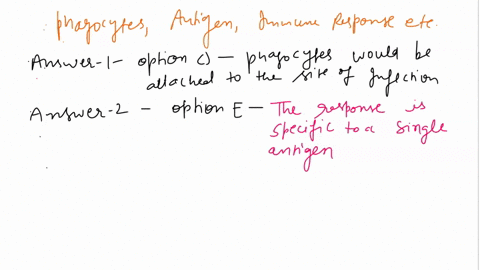 phagocytes, Antigen, Immune Response etc.
Answer-1- option c) - phagocytes would be
attached to the site of Infection
Answer-2 - option E - The response is
specific to a single
antigen